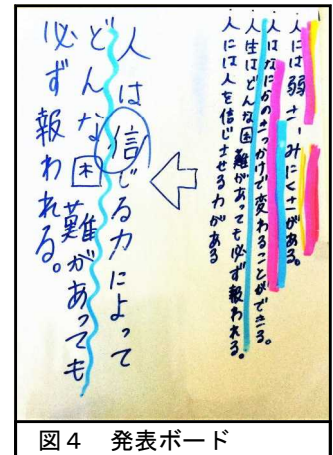 ・人には弱さ、みにくさがある。
・人はなにかのきっかけで変わることができる。
・人生はどんな困難があっても必ず報われる。
・人には人を信じさせる力がある
人は信じる力によって
どんな困難があっても
必ず報われる。
図4 発表ボード